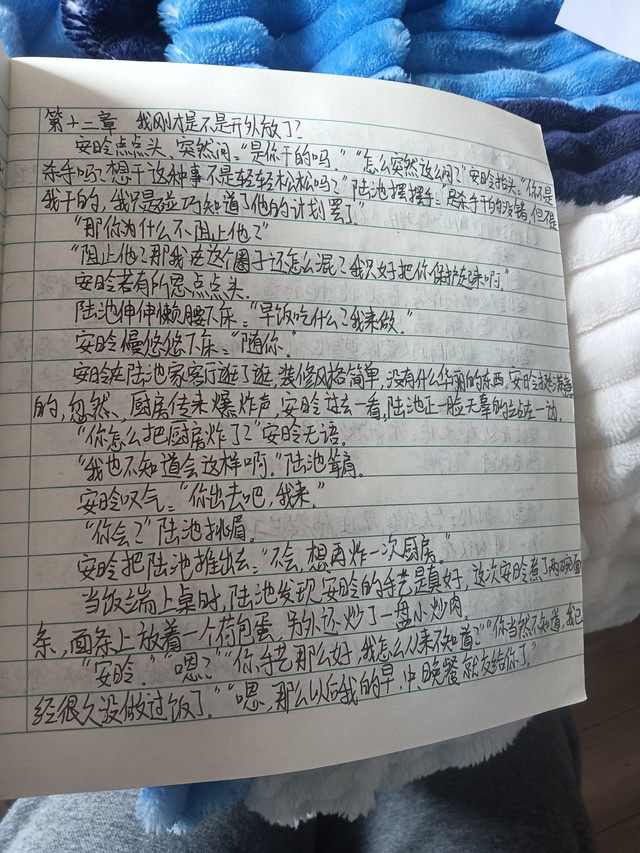 第十二章 我刚才是不是开外放了?
安昤点点头，突然问："是你干的吗""怎么突然这么问?"安昤抬头："你不是
杀手吗?想干这种事不是轻轻松松吗?"陆池摆摆手："是杀手干的没错，但不是
我干的，我只是碰巧知道了他的计划罢了"
"那你为什么不阻止他?"
"阻止他?那我在这个圈子还怎么混?我只好把你保护起来啊。"
安昤若有所思点点头。
陆池伸伸懒腰下床："早饭吃什么?我来做。"
安昤慢悠悠下床："随你。"
安昤在陆池家客厅逛了逛，装修风格简单，没有什么华丽的东西，安昤挺满意
的，忽然，厨房传来爆炸声，安昤过去一看，陆池正一脸无辜的站在一边。
"你怎么把厨房炸了?"安昤无语。
"我也不知道会这样啊。"陆池耸肩。
安昤叹气："你出去吧，我来。"
"你会?"陆池挑眉。
安昤把陆池推出去："不会，想再炸一次厨房。"
当饭端上桌时，陆池发现安昤的手艺是真好，这次安昤煮了两碗面
条，面条上放着一个荷包蛋，另外还炒了一盘小炒肉。
"安昤。""嗯?""你手艺那么好，我怎么从来不知道?""你当然不知道，我已
经很久没做过饭了。""嗯，那么以后我的早、中、晚餐就交给你了。"